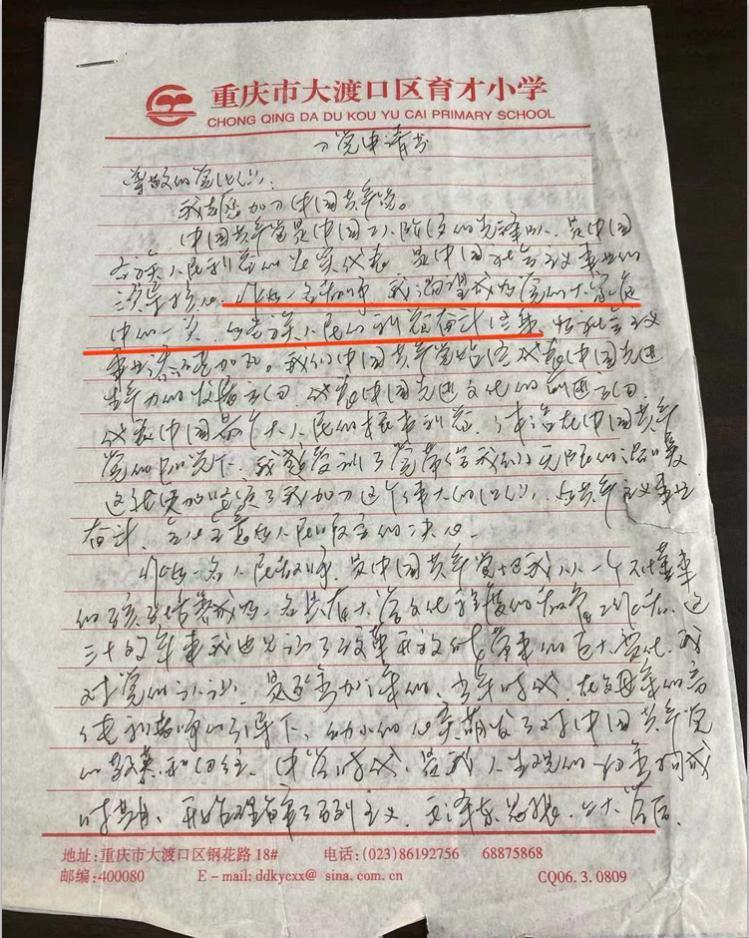 重庆市大渡口区育才小学
CHONG QING DA DU KOU YU CAI PRIMARY SCHOOL
入党申请书
尊敬的党组织:
我志愿加入中国共产党。
中国共产党是中国工人阶级的先锋队,是中国
各族人民利益的忠实代表,是中国社会主义事业的
领导核心。作为一名教师,我渴望成为党的大家庭
中的一员,为各族人民的利益奋斗终身,为社会主义
事业添砖加瓦。我们中国共产党始终代表中国先进
生产力的发展方向,代表中国先进文化的前进方向,
代表中国最广大人民的根本利益,生活在中国共产
党的领导下,我感受到了党带给我们的无限的温暖
这就更加坚定了我加入这个伟大的组织,为共产主义事业
奋斗,全心全意为人民服务的决心。
作为一名人民教师,是中国共产党把我从一个不懂事
的孩子培养成为一名具有大学文化程度的教育工作者。这
三十的年来我也见证了改革开放时代带来的巨大变化。我
对党的认识,是逐步加深的。少年时代,在父母亲的言
传和老师的引导下,幼小的心灵萌发了对中国共产党
的敬慕和向往。中学时代,是我人生观的一初步构成
时期,开始理解马列主义、毛泽东思想。上大学后,
地址:重庆市大渡口区钢花路18# 电话:(023)86192756 68875868
邮编:400080 E-mail: ddkycxx@ sina. com. cn CQ06. 3. 0809